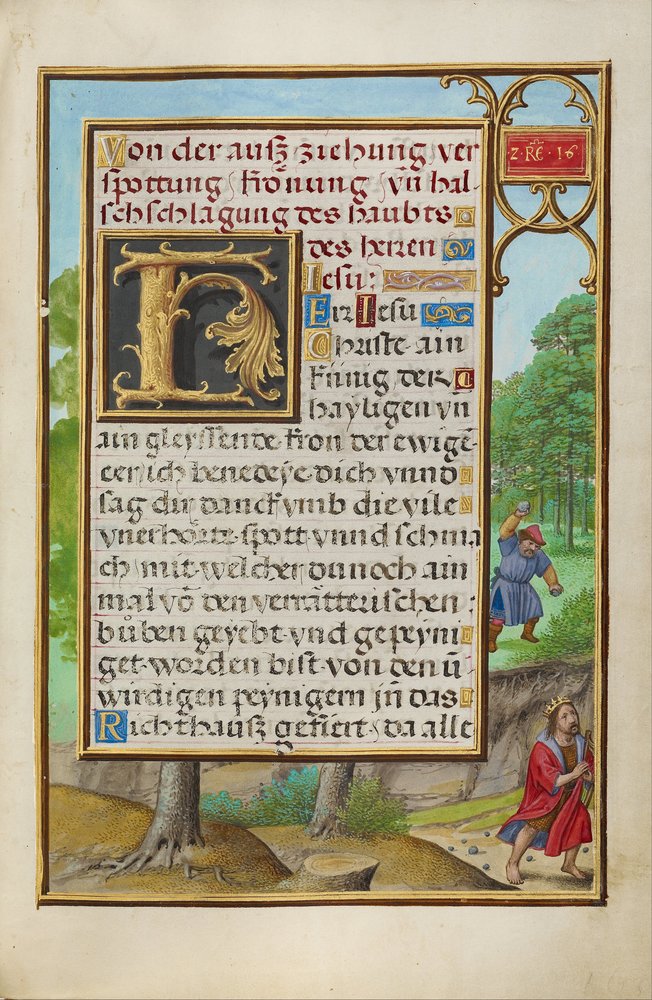 2 · RE · 16
Von der aufz ziehung, ver
spottung, krönung, vn̄ hal-
schschlagung des haubts
des herren
Iesu:
HEir Iesu
Christe ain
künig, der
hayligen vn̄
ain gleyssende kron der ewigē
eer, ich benedeye dich vnnd
sag dir danck vmb die vile
vnerhörte spott vnnd schma
ch, mit welcher du noch ain
mal vō den verrätterischen
bůben geyebt vnd gepeyni
get worden bist von den ū
wirdigen peynigern jn das
Richthaufz gefiert, da alle